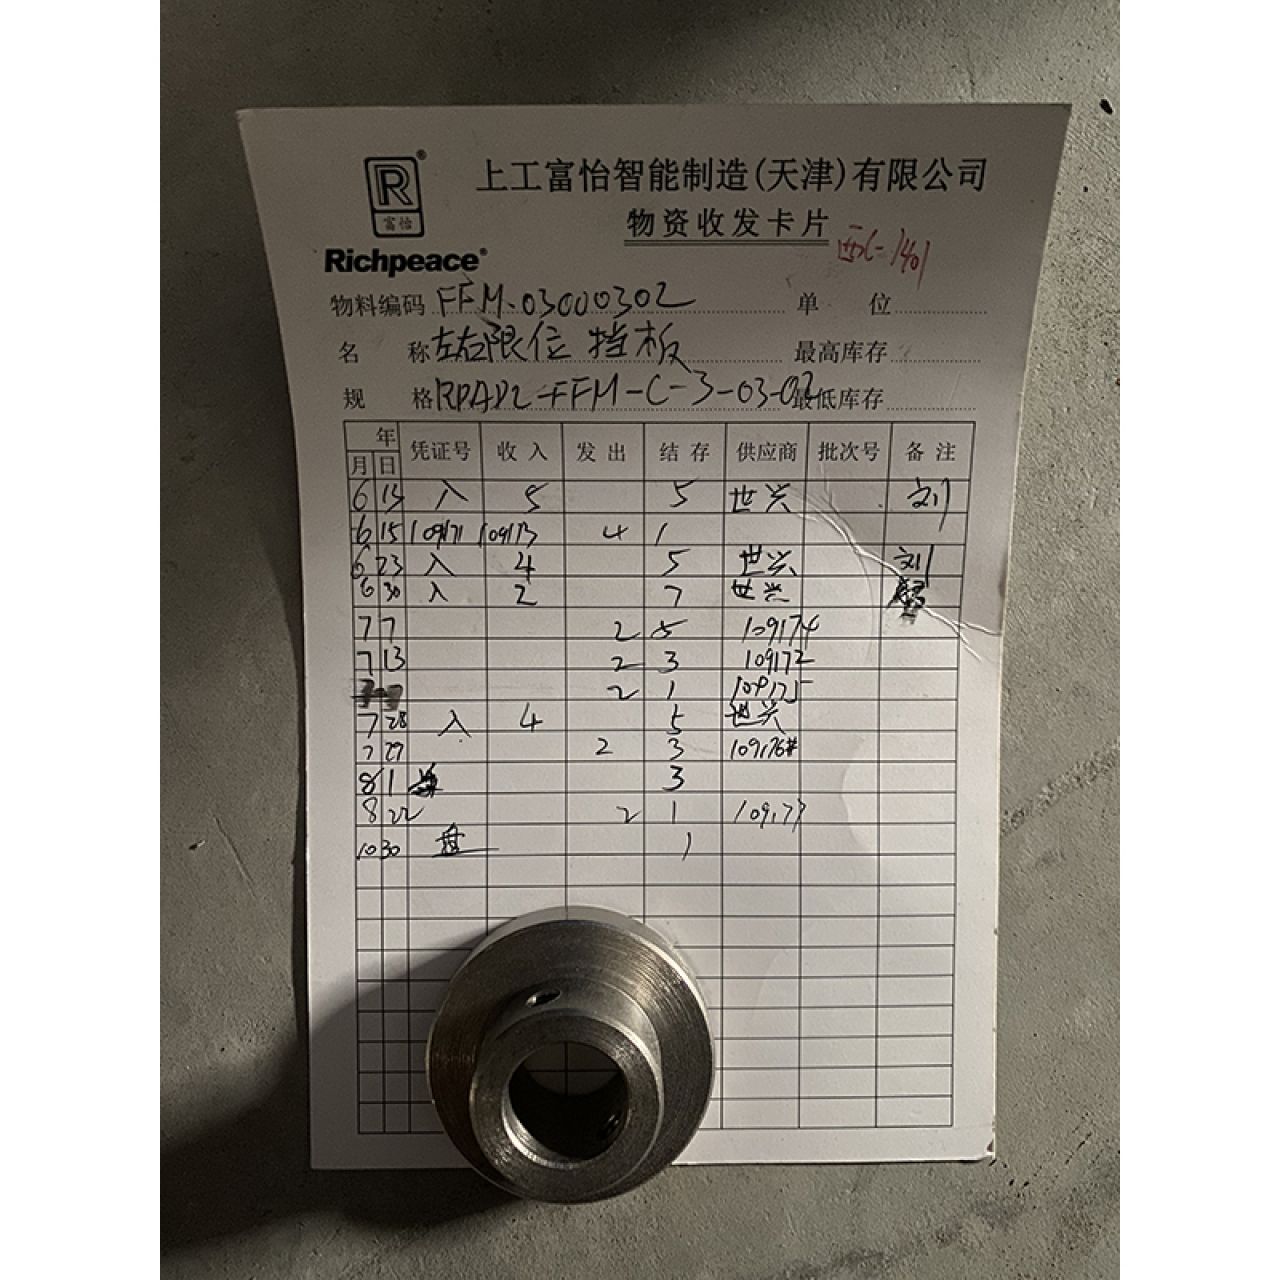 R®
富怡
Richpeace®
上工富怡智能制造(天津)有限公司
物资收发卡片
西C-1401
物料编码 FFM-03000302 单 位
名 称 左右限位挡板 最高库存
规 格 RPAP2-FFM-C-3-03-02 最低库存
年 月 日 凭证号 收入 发出 结存 供应商 批次号 备注
6 13 入 5 5 世兴 刘
6 15 109171 109173 4 1
6 23 入 4 5 世兴 刘
6 30 入 2 7 世兴
7 7 2 5 109174
7 13 2 3 109172
2 1 109175
7 28 入 4 5 世兴
7 29 2 3 109176#
8 1 盘 3
8 22 2 1 109177
10 30 盘 1